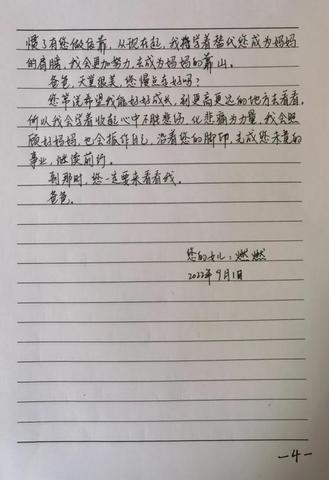 惯了有您做依靠，从现在起，我将学着替代您成为妈妈
的肩膀，我会更加努力，去成为妈妈的靠山。
爸爸，天堂很美，您慢点走好吗？
您常说希望我能好好成长，到更高更远的地方去看看，
所以我会学着收起心中不胜悲伤，化悲痛为力量，我会照
顾好妈妈，也会振作自己，沿着您的脚印，去成您未竟的
事业，继续前行。
到那时，您一定要来看看我。
爸爸。
您的女儿：燃燃
2022年9月1日
—4—